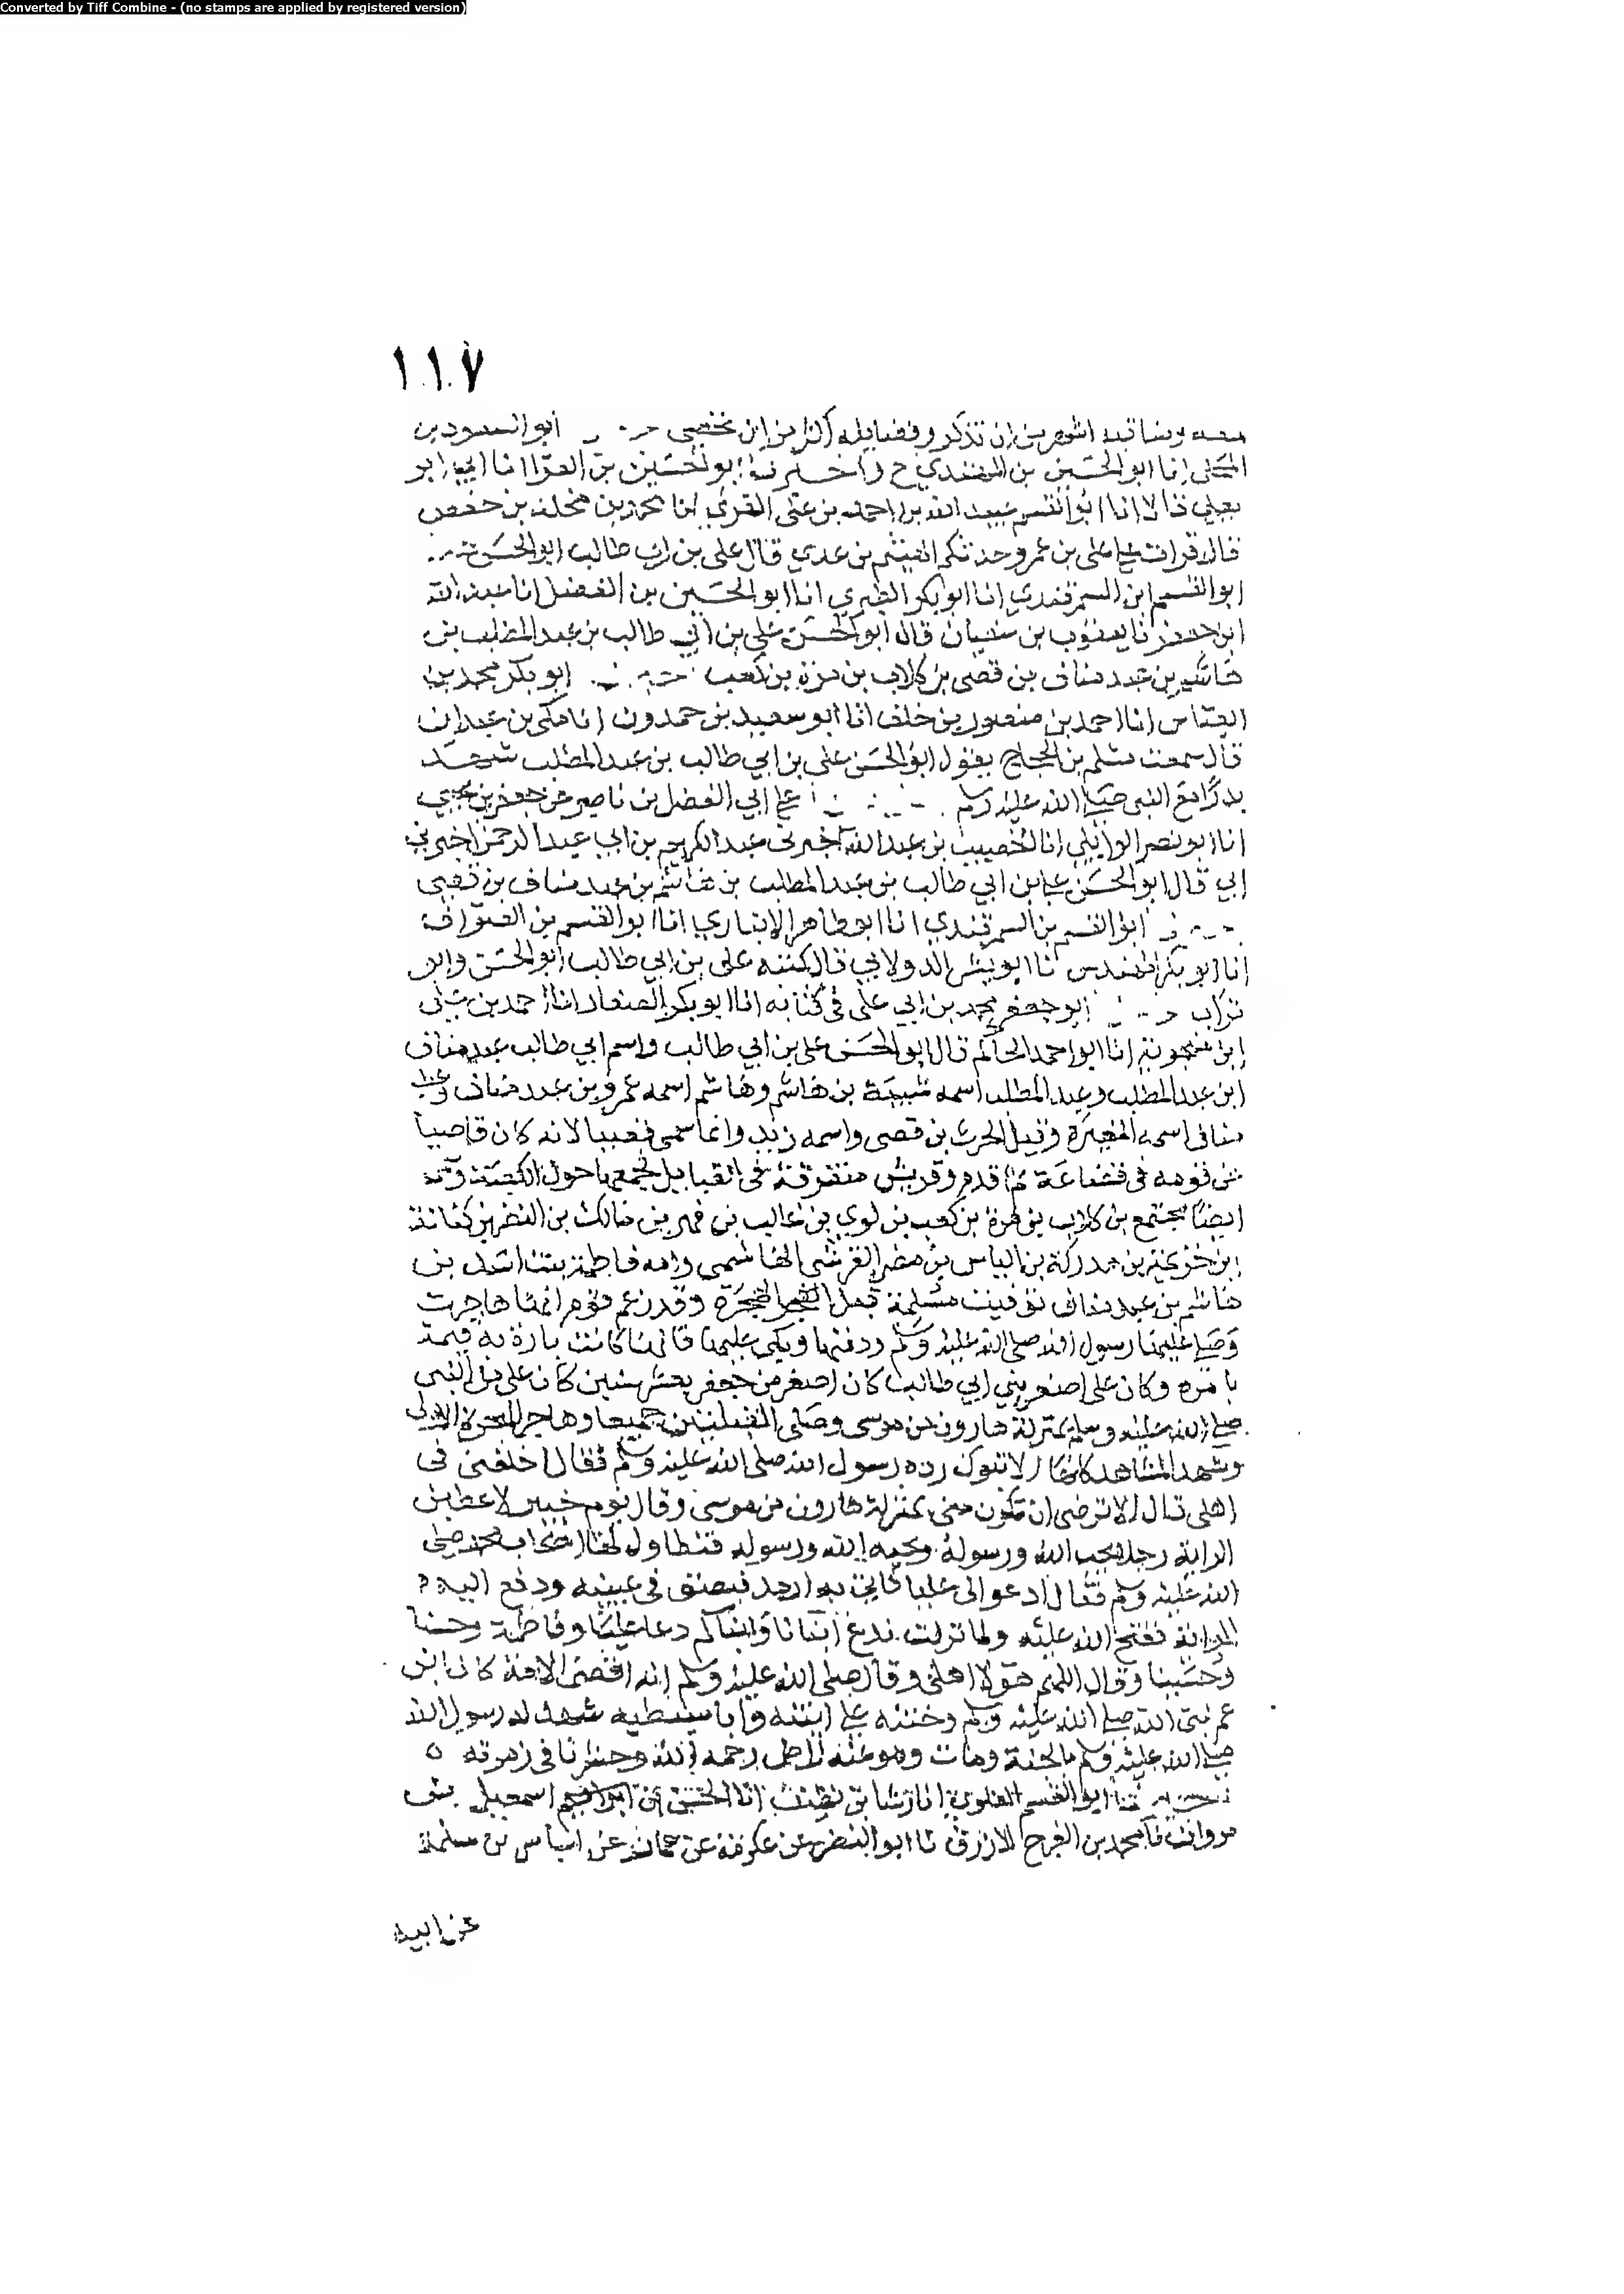 Converted by Tiff Combine - (no stamps are applied by registered version)
١١٧
ومناقبه اشهر من ان تذكر وفضايله اكثر من ان تحصى ابو السعود بن
المجلى انا ابو الحسين بن المهتدي ح واخبرنا ابو الحسين بن الفرا انا ابي ابو
يعلي قالا انا ابو القسم عبيد الله بن احمد بن على المقرئ انا محمد بن مخلد بن حفص
قال قرات على على بن عمرو حدثكم الهيثم بن عدي قال على بن ابي طالب ابو الحسن
ابو القسم ابن السمرقندي انا ابو بكر الطبري انا ابو الحسين بن الفضل انا عبد الله
ابن جعفر نا يعقوب بن سفيان قال ابو الحسن على بن ابي طالب بن عبد المطلب بن
هاشم بن عبد مناف بن قصى بن كلاب بن مرة بن كعب ابو بكر محمد بن
العباس انا احمد بن منصور بن خلف انا ابو سعيد بن حمدون انا مكى بن عبدان
قال سمعت مسلم بن الحجاج يقول ابو الحسن على بن ابي طالب بن عبد المطلب شهد
بدرا مع النبى صلى الله عليه وسلم على ابي الفضل بن ناصر عن جعفر بن يحيى
انا ابو نصر الوايلي انا الخصيب بن عبد الله اخبرني عبد الكريم بن ابي عبد الرحمن اخبرني
ابي قال ابو الحسن على بن ابي طالب بن عبد المطلب بن هاشم بن عبد مناف بن قصى
ابو القسم بن السمرقندي انا ابو طاهر الانباري انا ابو القسم بن الصواف
انا ابو بكر المهندس نا ابو بشر الدولابي قال كنية على بن ابي طالب ابو الحسن وابو
تراب ابو جعفر محمد بن ابي على فى كتابه انا ابو بكر الصفار انا احمد بن على
ابن منجويه انا ابو احمد الحاكم قال ابو الحسن على بن ابي طالب واسم ابي طالب عبد مناف
ابن عبد المطلب وعبد المطلب اسمه شيبة بن هاشم وهاشم اسمه عمرو بن عبد مناف وعبد
مناف اسمه المغيرة وقيل الحرث بن قصى واسمه زيد وانما سمى قصيا لانه كان قاصيا
عن قومه فى قضاعة ثم قدم وقريش متفرقة فى القبايل فجمعها حول الكعبة وسمي
ايضا مجتمع بن كلاب بن مرة بن كعب بن لوي بن غالب بن فهر بن مالك بن النضر بن كنانة
ابن خزيمة بن مدركة بن الياس بن مضر القرشي الهاشمى وامه فاطمة بنت اسد بن
هاشم بن عبد مناف توفيت مسلمة قبل الهجرة وقد زعم قوم انها هاجرت
وصلى عليها رسول الله صلى الله عليه وسلم ودفنها وبكى عليها فانها كانت بارة به قيمة
بامره وكان على اصغر بني ابي طالب كان اصغر من جعفر بعشر سنين كان على من النبى
صلى الله عليه وسلم بمنزلة هارون من موسى وصلى القبلتين جميعا وهاجر الهجرة الاولى
وشهد المشاهد كلها الا تبوك رده رسول الله صلى الله عليه وسلم فقال اخلفنى فى
اهلى قال الا ترضى ان تكون منى بمنزلة هارون من موسى وقال يوم خيبر لاعطين
الراية رجلا يحب الله ورسوله ويحبه الله ورسوله فتطاول لها اصحاب محمد صلى
الله عليه وسلم فقال ادعوا الى عليا فاتي به ارمد فبصق فى عينيه ودفع اليه
الراية ففتح الله عليه ولما نزلت ندع ابنانا وابناكم دعا عليا وفاطمة وحسنا
وحسينا وقال اللهم هولا اهلى وقال صلى الله عليه وسلم انه اقضى الامة كان ابن
عم نبى الله صلى الله عليه وسلم وختنه على ابنته وابا سبطيه شهد له رسول الله
صلى الله عليه وسلم بالجنة ومات وهو عنه راض رحمه الله وحشرنا فى زمرته ه
ابو القسم العلوي انا رشا بن نظيف انا الحسن بن اسمعيل بن
مروان نا محمد بن الفرج الازرق نا ابو النضر عن عكرمة بن عمار عن اياس بن سلمة
عن ابيه